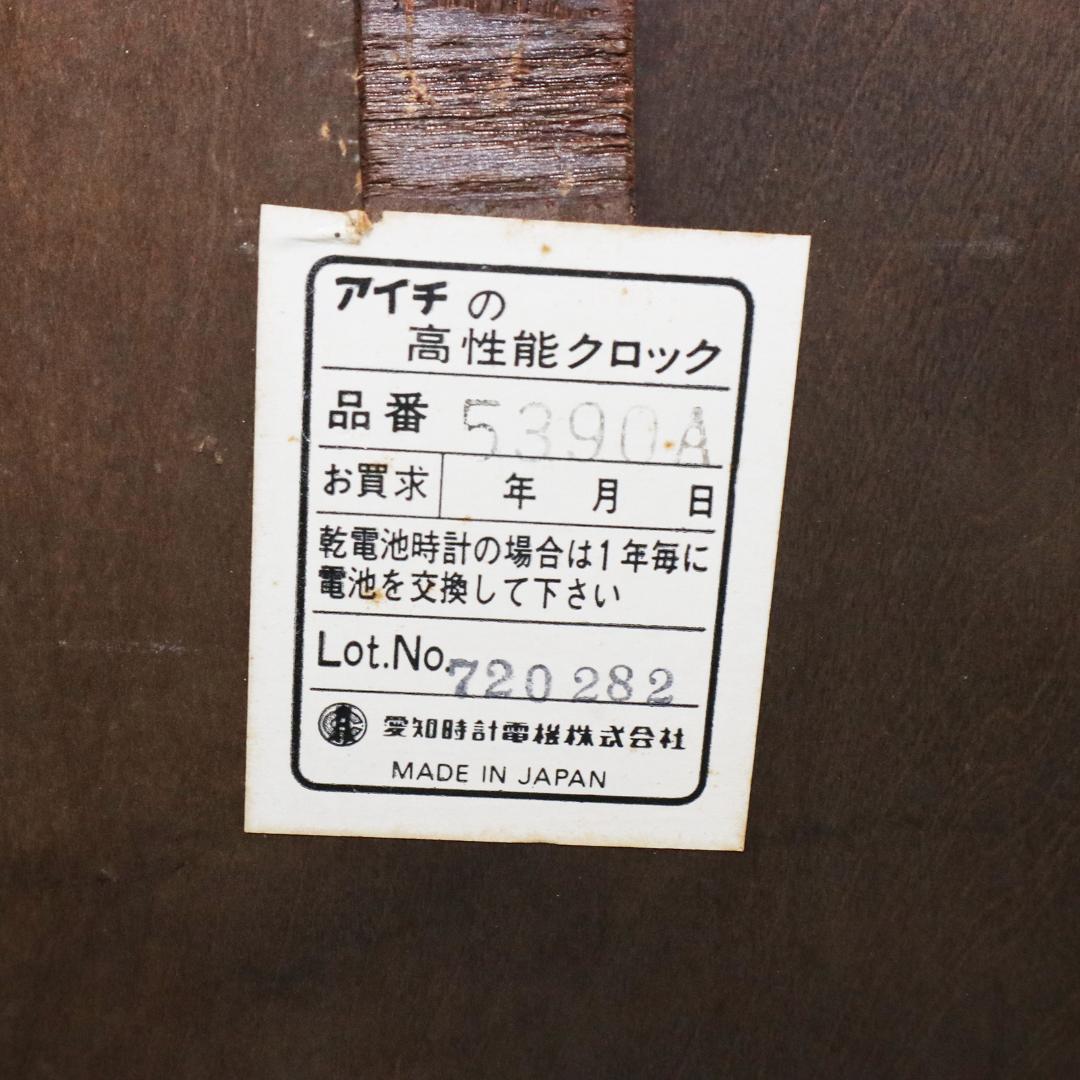 アイチの
高性能クロック
品番 5390A
お買求 年 月 日
乾電池時計の場合は1年毎に
電池を交換して下さい
Lot.No. 720 282
愛知時計電機株式会社
MADE IN JAPAN